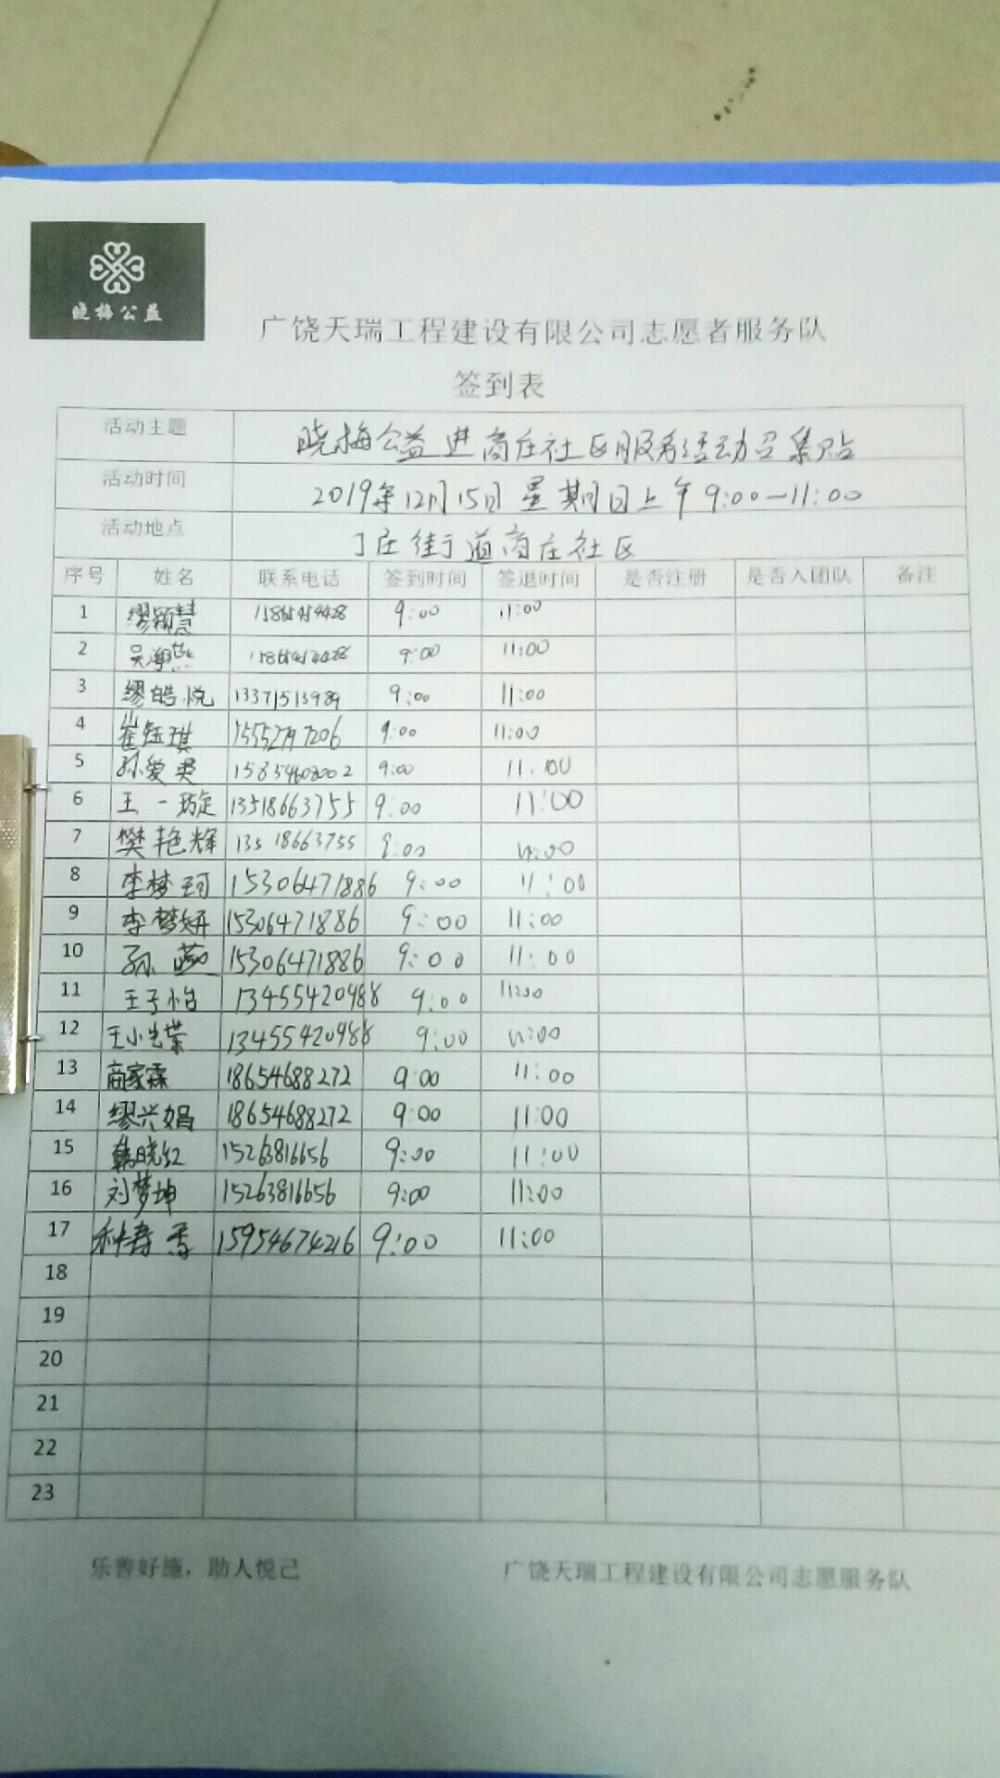 晓梅公益
广饶天瑞工程建设有限公司志愿者服务队
签到表
活动主题 晓梅公益进商庄社区服务活动召集贴
活动时间 2019年12月15日星期日上午9:00—11:00
活动地点 丁庄街道商庄社区
序号 姓名 联系电话 签到时间 签退时间 是否注册 是否入团队 备注
1 缪颖慧 15865454428 9:00 11:00
2 9:00 11:00
3 缪皓悦 13371513989 9:00 11:00
4 崔钰琪 9:00 11:00
5 孙爱英 9:00 11.00
6 王一璇 13518663755 9:00 11:00
7 樊艳辉 13518663755 9:00 11:00
8 李梦珂 15306471886 9:00 11:00
9 李梦妍 15306471886 9:00 11:00
10 孙 15306471886 9:00 11:00
11 王子怡 13455420988 9:00 11:00
12 王小 13455420988 9:00 11:00
13 商家霖 18654688272 9:00 11:00
14 缪兴娟 18654688272 9:00 11:00
15 韩晓红 15263816656 9:00 11:00
16 刘梦坤 15263816656 9:00 11:00
17 15954674216 9:00 11:00
18
19
20
21
22
23
乐善好施，助人悦己 广饶天瑞工程建设有限公司志愿服务队